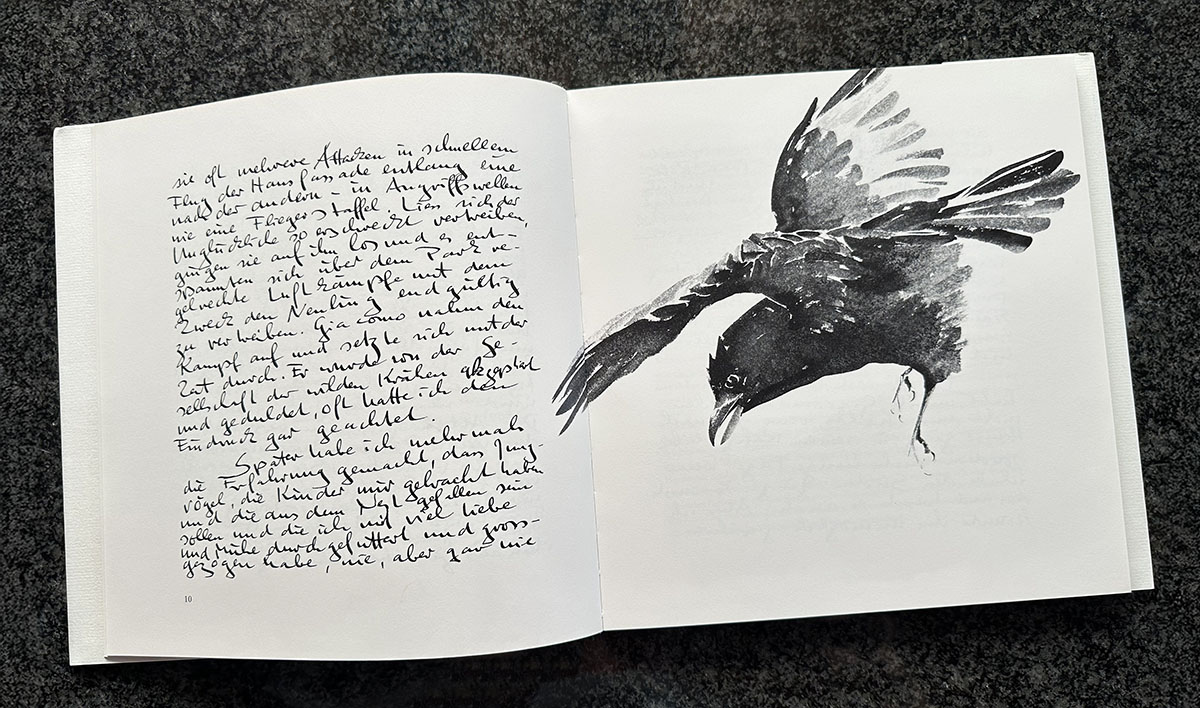 sie oft mehrere Attacken in schnellem
Flug der Hausfassade entlang eine
nach der andern – in Angriffswellen
wie eine Fliegerstaffel. Liess sich der
Unglückliche so erschreckt vertreiben,
gingen sie auf ihn los und es ent-
spannten sich über dem Park re-
gelrechte Luftkämpfe mit dem
Zweck den Neuling endgültig
zu vertreiben. Giacomo nahm den
Kampf auf und setzte sich mit der
Zeit durch. Er wurde von der Ge-
sellschaft der wilden Krähen akzeptiert
und geduldet, oft hatte ich den
Eindruck gar geachtet.
Später habe ich mehrmals
die Erfahrung gemacht, dass Jung-
vögel, die Kinder mir gebracht haben
und die aus dem Nest gefallen sein
sollen und die ich mit viel Liebe
und Mühe durchgefüttert und gross-
gezogen habe, nie, aber gar nie
10